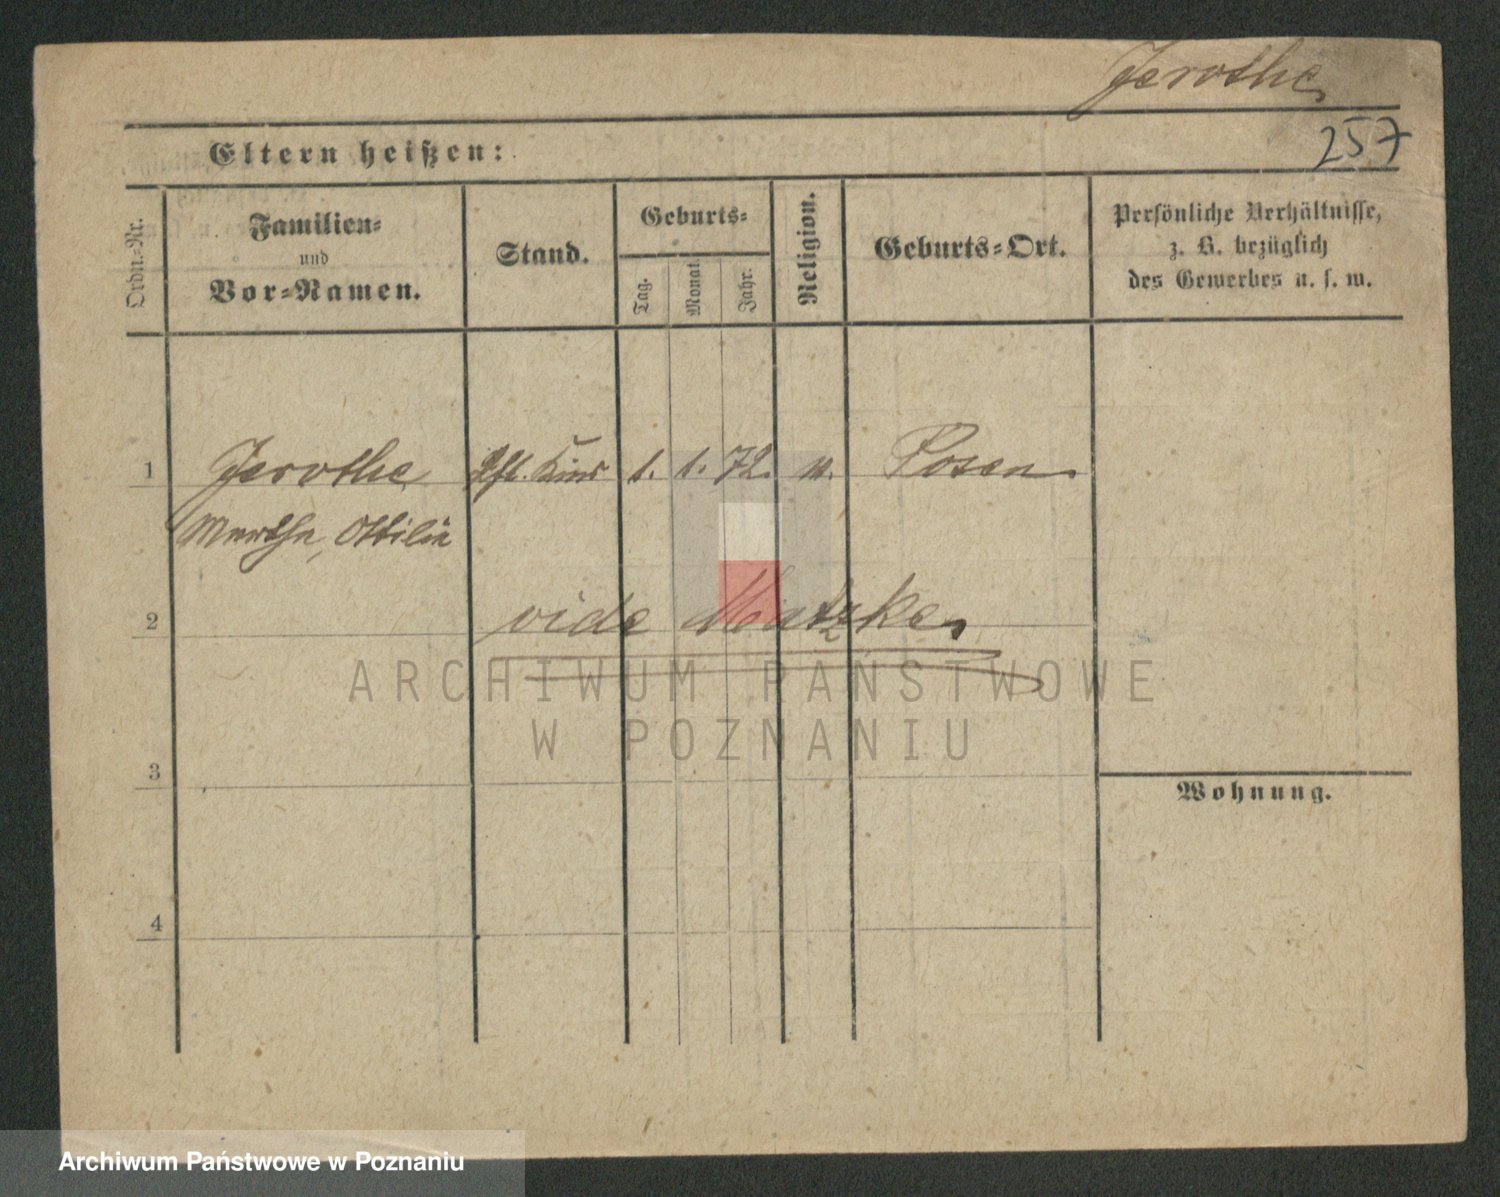 Jerothe
257
Eltern heißen:
Ordn.-Nr.
Familien-
und
Vor-Namen.
Stand.
Geburts-
Tag.
Monat.
Jahr.
Religion.
Geburts-Ort.
Persönliche Verhältnisse,
z. B. bezüglich
des Gewerbes u. s. w.
1 Jerothe Kind 1. 1. 72. Posen
Marthe, Ottilie
2 vide Matzke
ARCHIWUM PAŃSTWOWE
W POZNANIU
3
Wohnung.
4
Archiwum Państwowe w Poznaniu